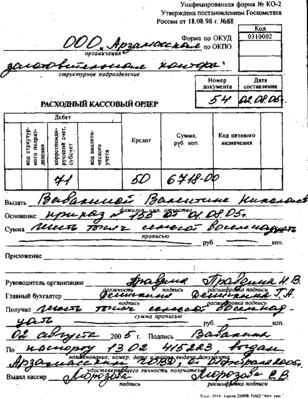 Унифицированная форма № КО-2
Утверждена постановлением Госкомстата
России от 18.08.98 г. №88
Код
Форма по ОКУД 0310002
ООО "Арзамасская по ОКПО
организация
заготовительная контора"
структурное подразделение
Номер документа Дата составления
РАСХОДНЫЙ КАССОВЫЙ ОРДЕР 54 02.08.05г.
Дебет
код структур- ного подраз- деления
корреспонди- рующий счет, субсчет
код аналити- ческого учета
Кредит
Сумма, руб. коп.
Код целевого назначения
71 50 6718-00
Выдать Ваваниной Валентине Николаев
фамилия, имя, отчество
Основание: приказ 155 от 01.08.05г.
Сумма Шесть тысяч семьсот восемнадцать
прописью
руб. коп.
Приложение
Руководитель организации Правдина Н.В.
должность подпись расшифровка подписи
Главный бухгалтер Г.А.
подпись расшифровка подписи
Получил шесть тысяч семьсот восемнад-
сумма прописью
цать руб. коп.
02 августа 2005 г. Подпись Ваванина
По паспорту 13 02 415223 выдан
наименование, номер, дата и место выдачи документа,
Арзамасским февраля 2005г.
удостоверяющего личность получателя
Выдал кассир Морозова Морозова Е.В.
подпись расшифровка подписи